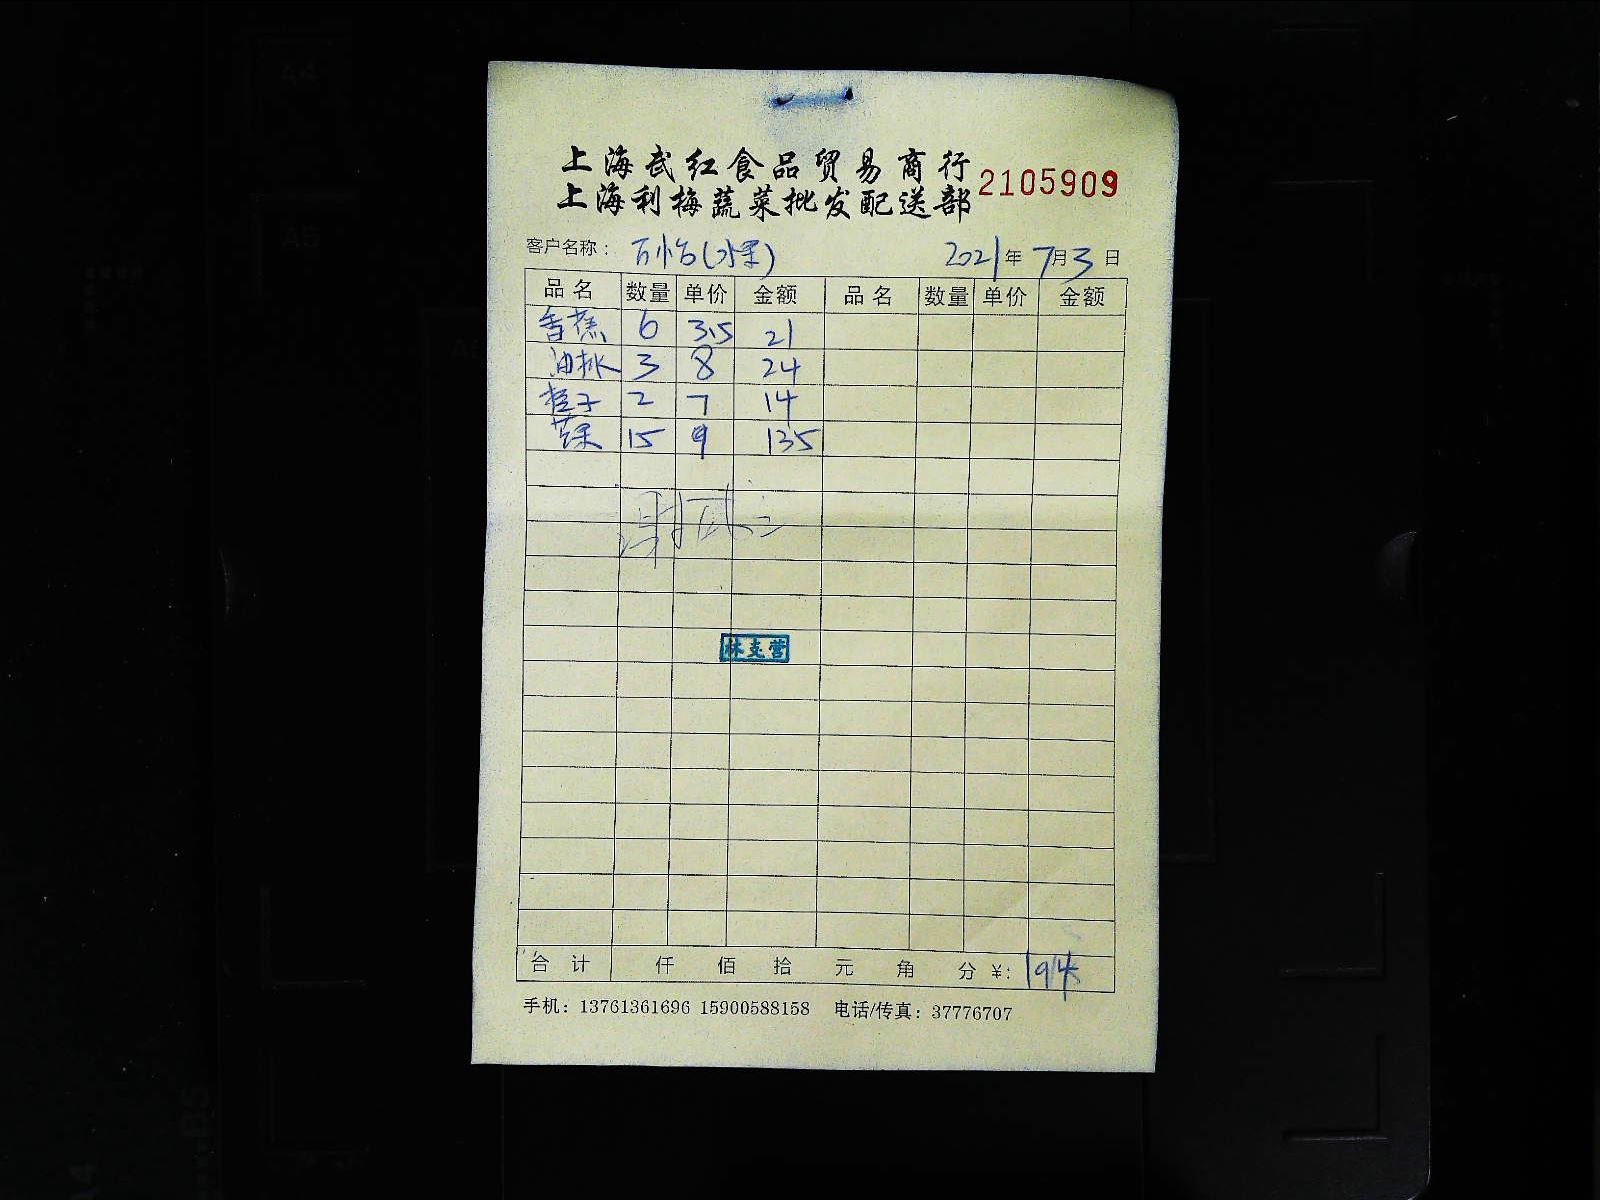 上海武红食品贸易商行
上海利梅蔬菜批发配送部
2105909
客户名称： 百怡(水果) 2021年7月3日
品名 数量 单价 金额 品名 数量 单价 金额
香蕉 6 3.5 21
油桃 3 8 24
桔子 2 7 14
芒果 15 9 135
林支营
合计 仟 佰 拾 元 角 分 ¥: 194
手机：13761361696 15900588158 电话/传真：37776707
A4
A5